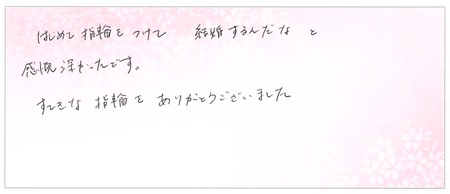 はじめて指輪をつけて 結婚するんだな と
感慨深かったです。
すてきな 指輪を ありがとうございました